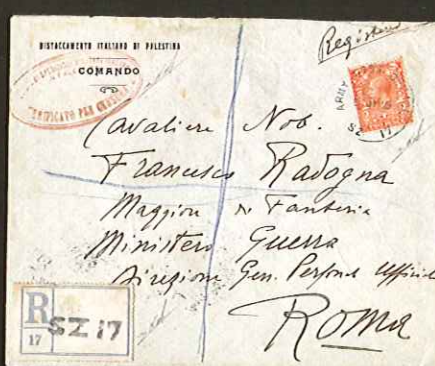 DISTACCAMENTO ITALIANO DI PALESTINA
COMANDO
VERIFICATO PER CENSURA
Registered
ARMY
SZ 17
Cavaliere Nob.
Francesco Radogna
Maggiore di Fanteria
Ministero Guerra
Direzione Gen. Personale Ufficiali
Roma
R
17
SZ 17